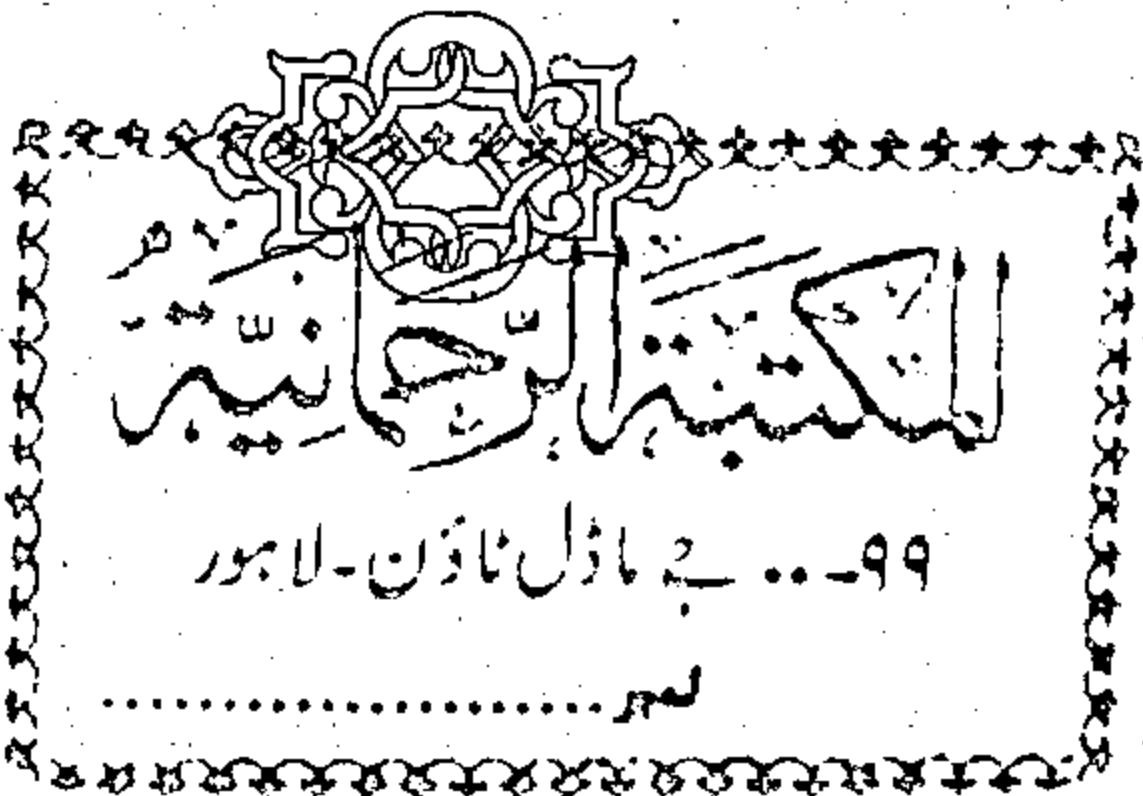 المکتبۃ الرحمانیۃ
۹۹-.. جے ماڈل ٹاؤن-لاہور
نمبر ......................